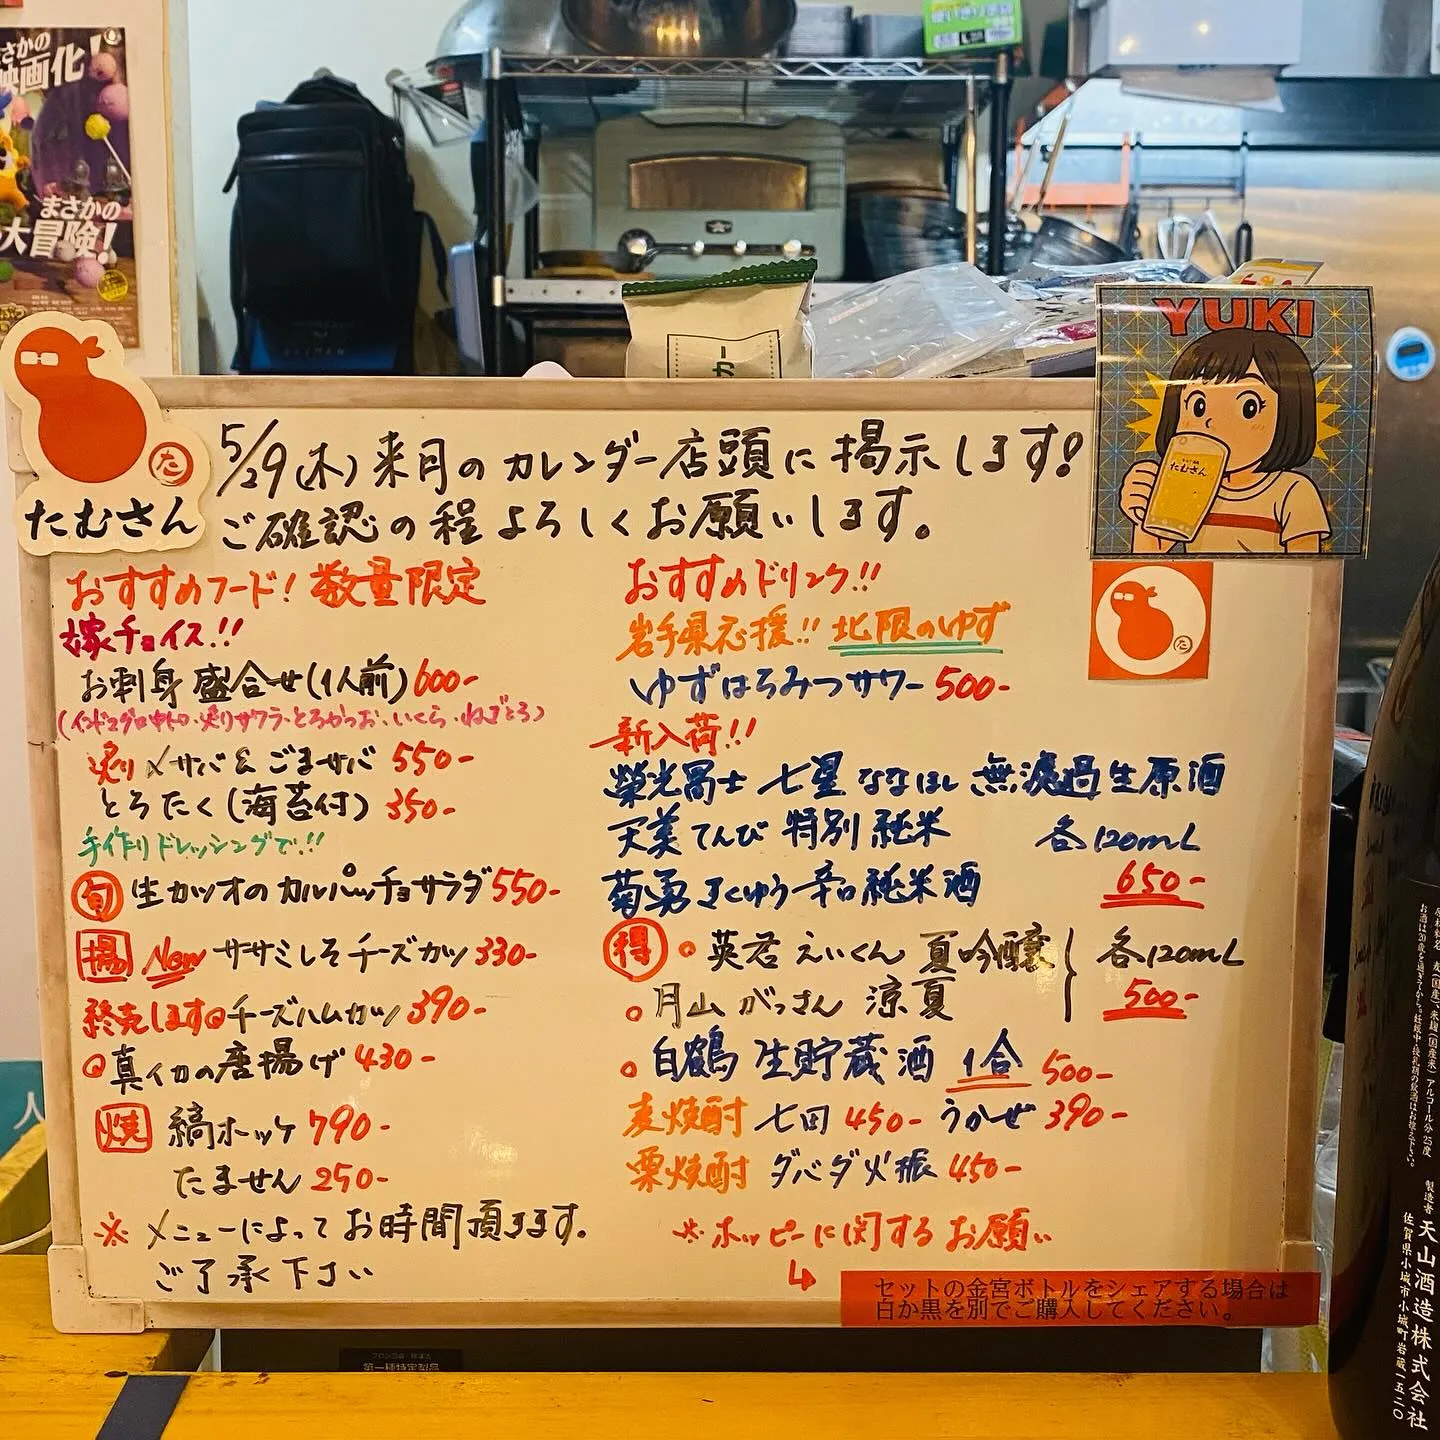 まさかの
映画化!
まさかの
大冒険!
YUKI
たむさん
た
たむさん
5/29(木)来月のカレンダー店頭に掲示します!
ご確認の程よろしくお願いします。
おすすめフード!数量限定
嫁チョイス!!
お刺身盛合せ(1人前)600-
(インドマグロ中トロ・炙りサワラ・とろかつお・いくら・ねぎとろ)
炙り〆サバ&ごまサバ 550-
とろたく(海苔付)350-
手作りドレッシングで!!
旬 生カツオのカルパッチョサラダ550-
揚 New ササミしそチーズカツ330-
終売します チーズハムカツ390-
真イカの唐揚げ430-
焼 縞ホッケ790-
たません290-
※メニューによってお時間頂きます。
ご了承下さい
おすすめドリンク!!
岩手県応援!!北限のゆず
ゆずはちみつサワー500-
新入荷!!
榮光冨士 七星 ななほし 無濾過生原酒
天美 てんび 特別純米 各120mL
菊勇 きくゆう 辛口純米酒 650-
得 英君 えいくん 夏吟醸 各120mL
月山 がっさん 涼夏 500-
白鶴 生貯蔵酒 1合 500-
麦焼酎 七田 450- うかぜ 390-
栗焼酎 ダバダ火振 450-
※ホッピーに関するお願い
セットの金宮ボトルをシェアする場合は
白か黒を別でご購入してください。
第一種特定製品
製造者 天山酒造株式会社
佐賀県小城市小城町岩蔵一五二〇